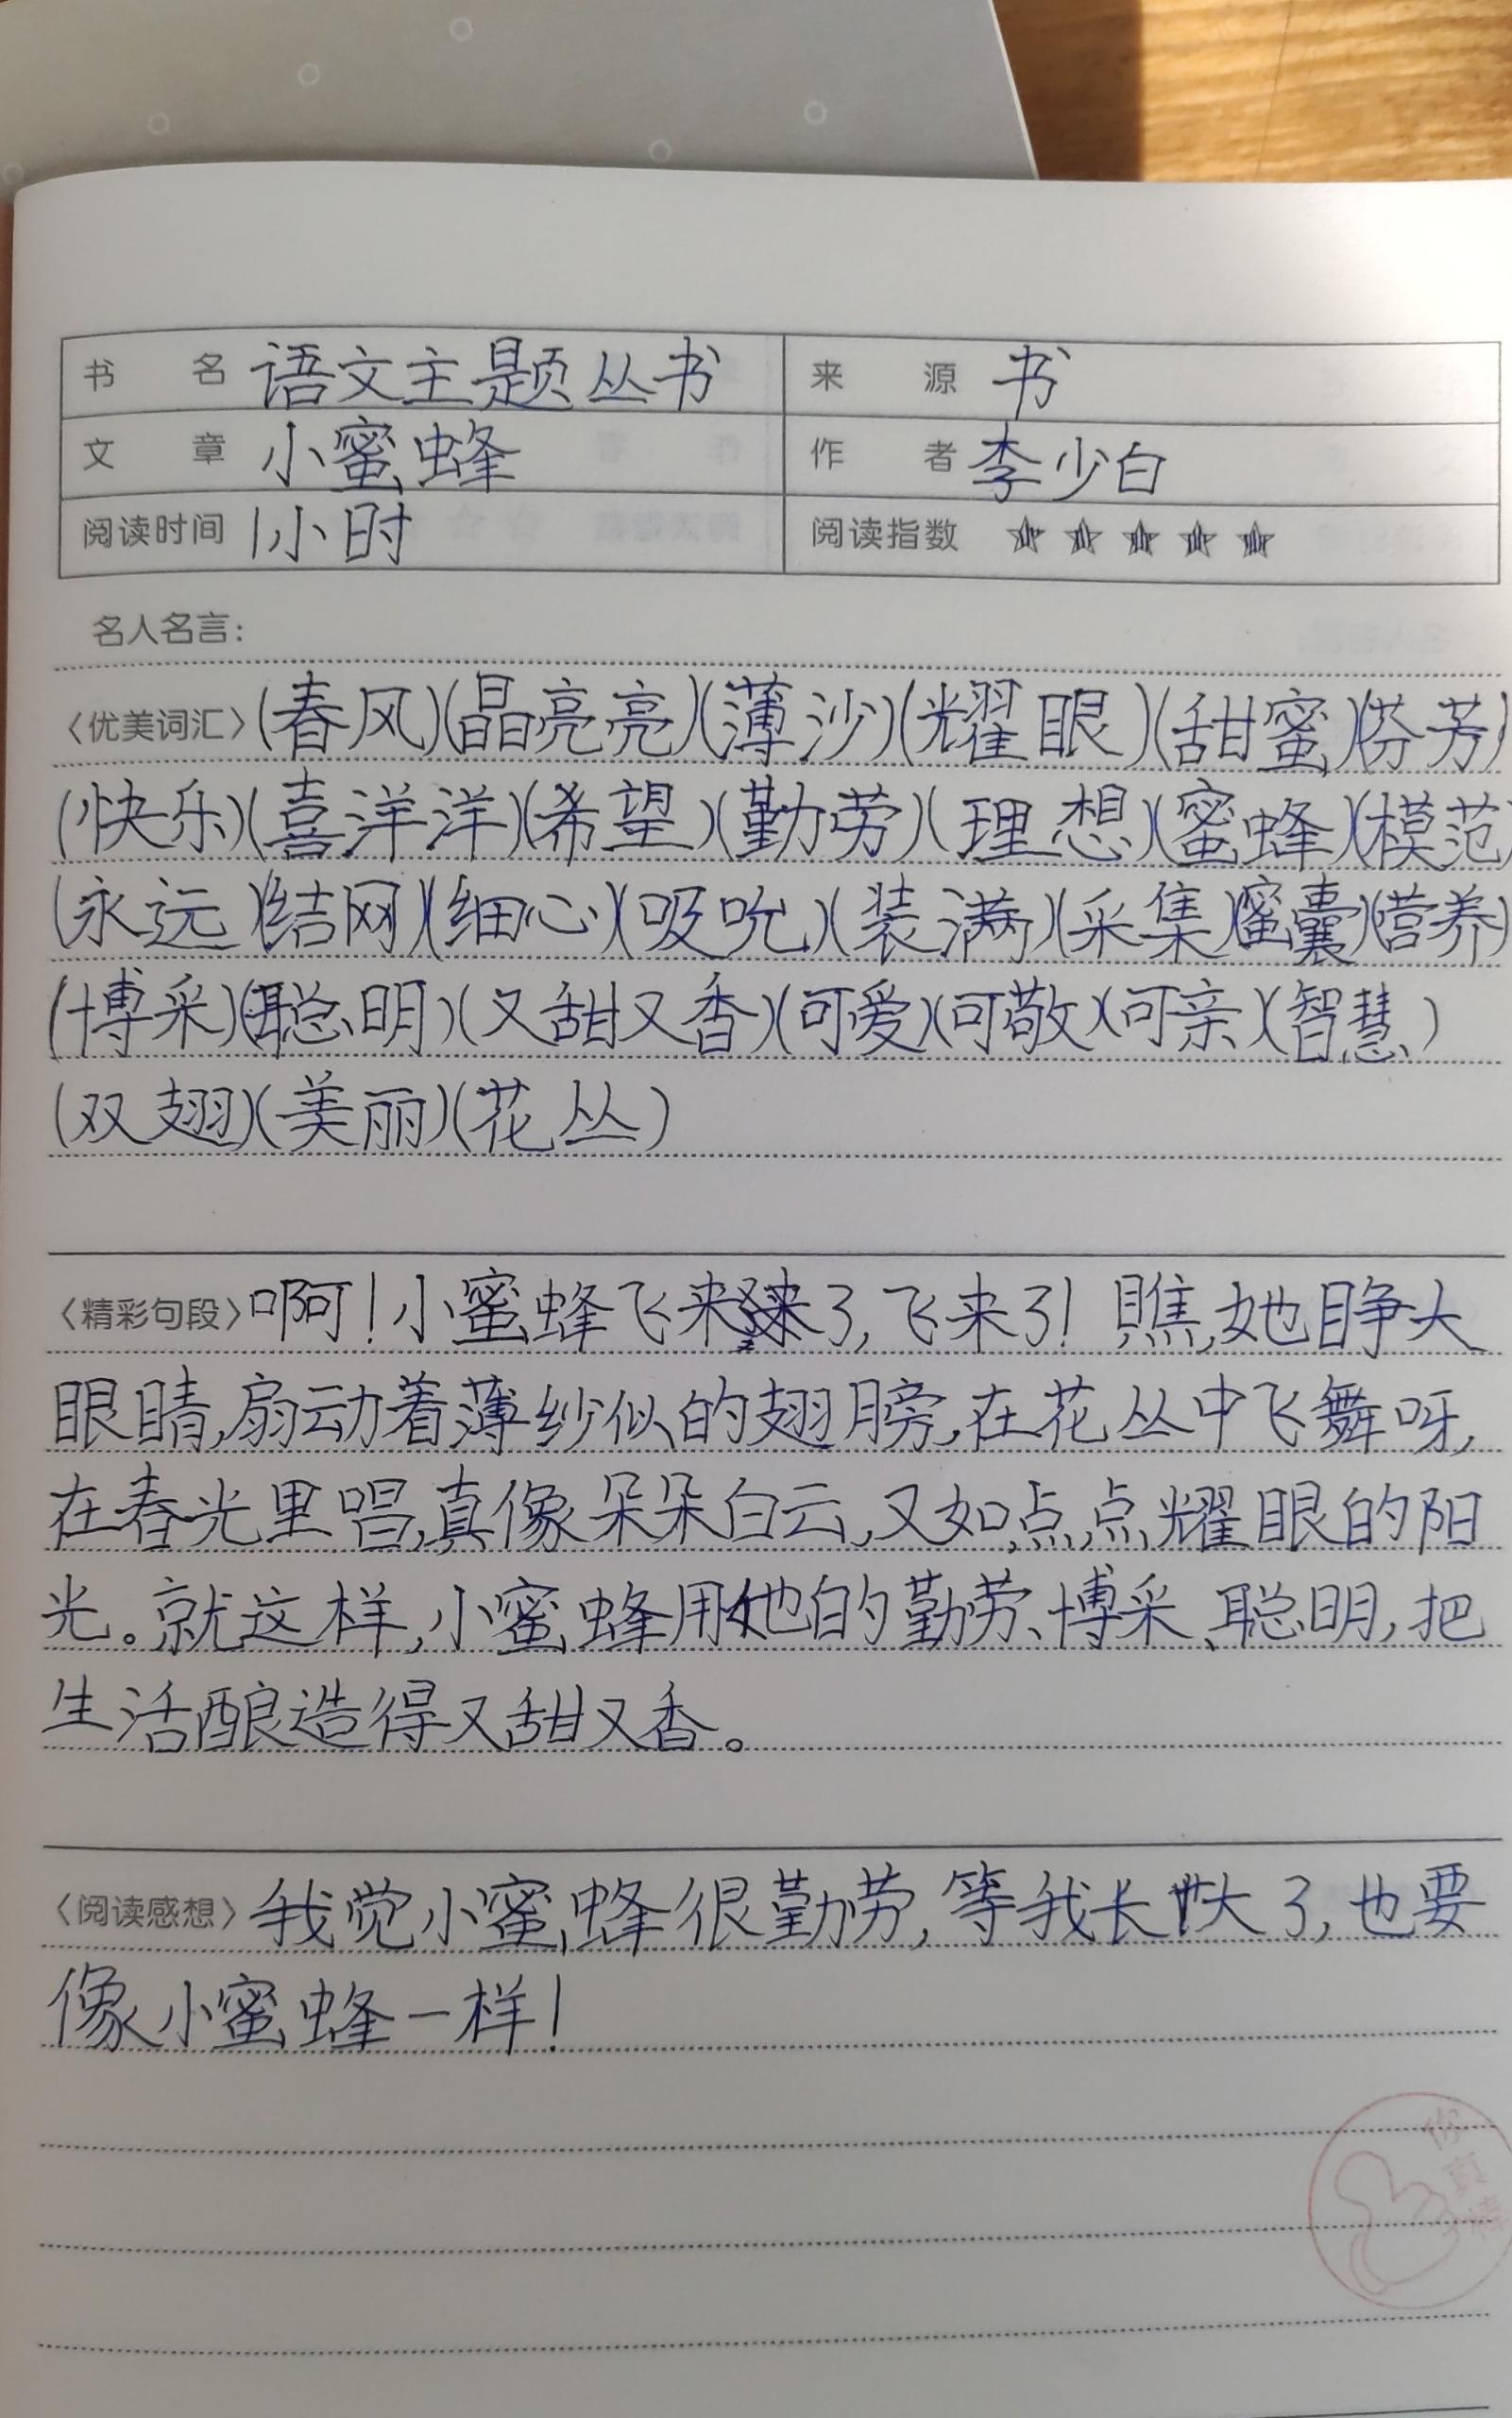 书名 语文主题丛书 来源 书
文章 小蜜蜂 作者 李少白
阅读时间 1小时 阅读指数 ★★★★★
名人名言：
〈优美词汇〉(春风)(晶亮亮)(薄沙)(耀眼)(甜蜜)(芬芳)
(快乐)(喜洋洋)(希望)(勤劳)(理想)(蜜蜂)(模范
(永远)(结网)(细心)(吸吮)(装满)(采集)(蜜囊)(营养)
(博采)(聪明)(又甜又香)(可爱)(可敬)(可亲)(智慧)
(双翅)(美丽)(花丛)
〈精彩句段〉啊！小蜜蜂飞来了，飞来了！瞧，她睁大
眼睛，扇动着薄纱似的翅膀，在花丛中飞舞呀，
在春光里唱，真像朵朵白云，又如点点耀眼的阳
光。就这样，小蜜蜂用他的勤劳、博采、聪明，把
生活酿造得又甜又香。
〈阅读感想〉我觉小蜜蜂很勤劳，等我长大了，也要
像小蜜蜂一样！
你真棒